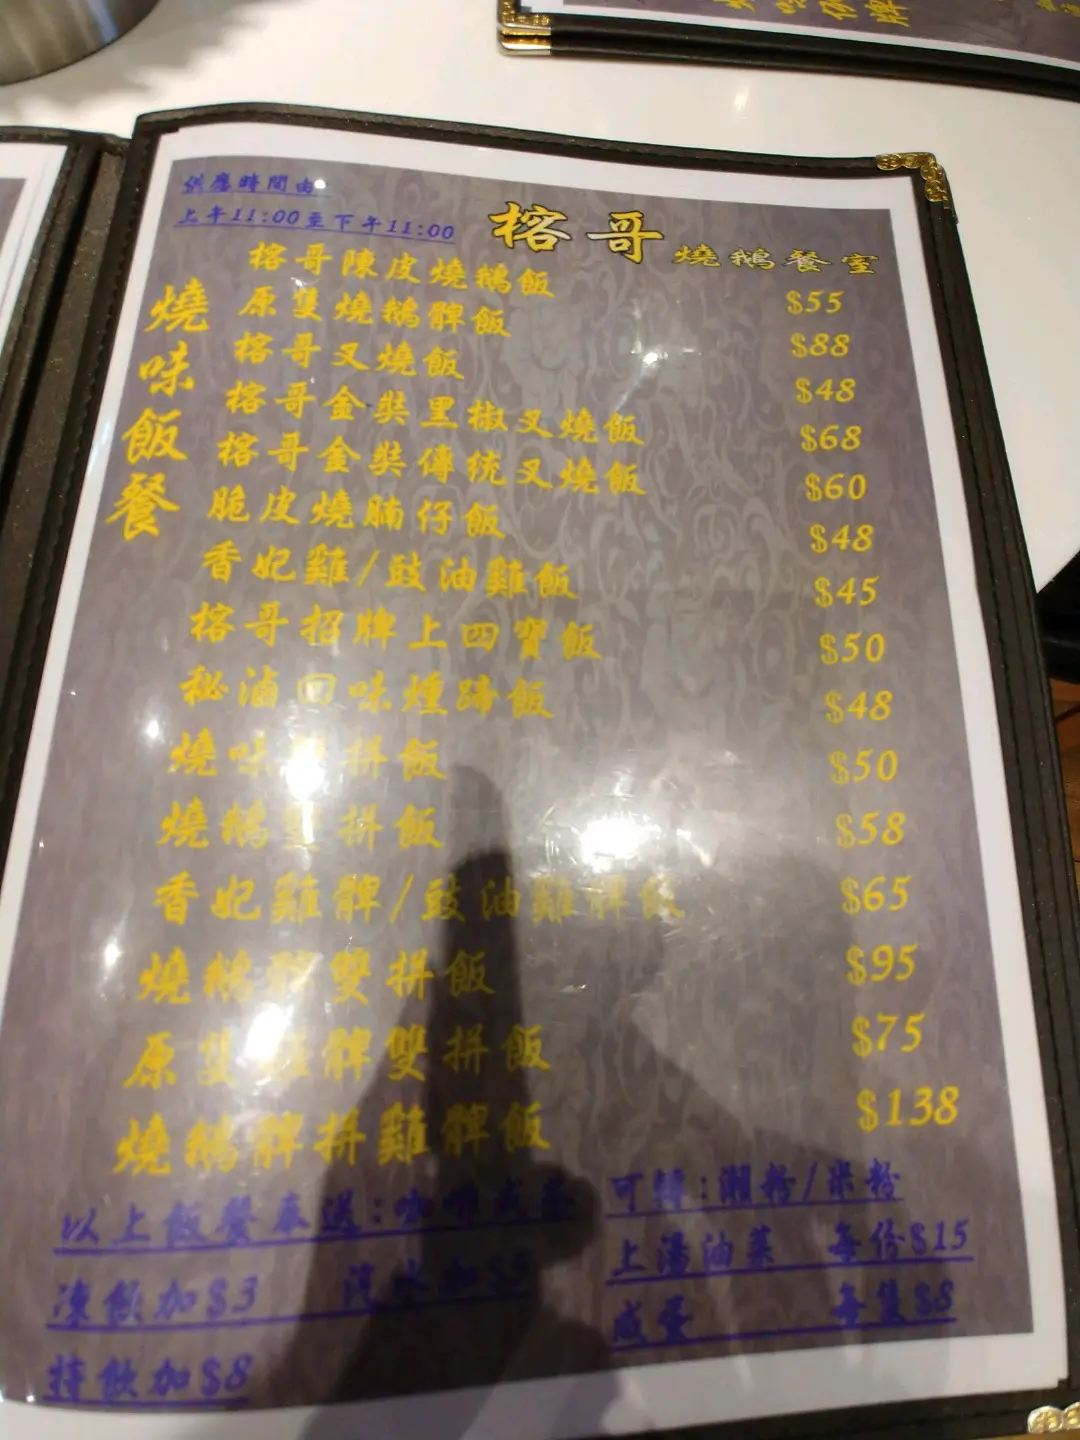 供應時間由
上午11:00至下午11:00
榕哥 燒鵝餐室
燒味飯餐
榕哥陳皮燒鵝飯 $55
原隻燒鵝髀飯 $88
榕哥叉燒飯 $48
榕哥金裝黑椒叉燒飯 $68
榕哥金裝傳統叉燒飯 $60
脆皮燒腩仔飯 $48
香妃雞/豉油雞飯 $45
榕哥招牌上四寶飯 $50
秘滷回味燻蹄飯 $48
燒味雙拼飯 $50
燒鵝雙拼飯 $58
香妃雞髀/豉油雞髀飯 $65
燒鵝髀雙拼飯 $95
原隻雞髀雙拼飯 $75
燒鵝髀拼雞髀飯 $138
以上飯餐奉送:咖啡或茶
凍飲加$3 汽水加$5
特飲加$8
可轉:瀨粉/米粉
上湯油菜 每份$15
咸蛋 每隻$8